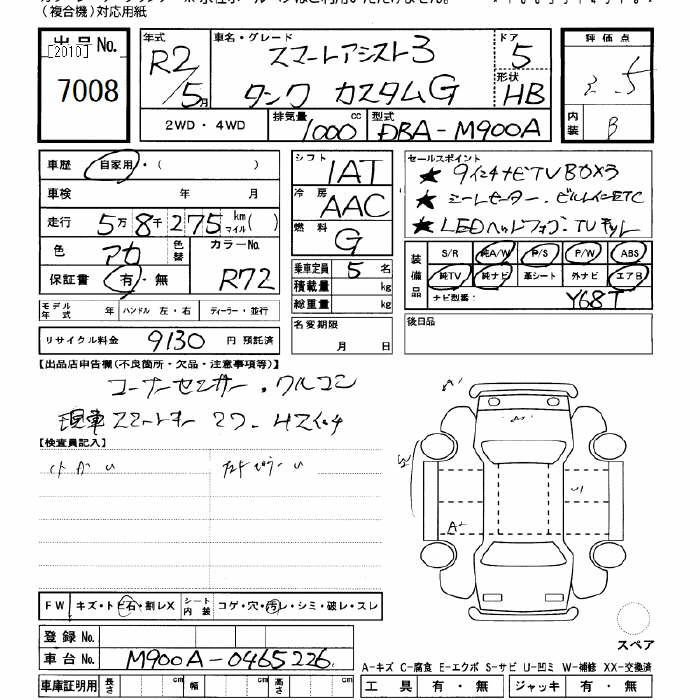 (複合機)対応用紙
出品No. [2010] 7008
年式 R2/5月
車名・グレード スマートアシスト3 タンク カスタムG
ドア 5
形状 HB
評価点
内装 B
2WD・4WD
排気量 1000 cc
型式 DBA-M900A
車歴 自家用・( )
車検 年 月
走行 5万8千275 km マイル( )
色 アカ 色替 カラーNo. R72
保証書 有・無
シフト IAT
冷房 AAC
燃料 G
乗車定員 5 名
積載量 kg
総重量 kg
セールスポイント
★ 9インチナビTV Bカメラ
★ シートヒーター.ビルトインETC
★ LEDヘッドフォグ.TVキット
装備品 S/R 純A/W P/S P/W ABS
純TV 純ナビ 革シート 外ナビ エアB
ナビ型番: Y68T
モデル年式 年 ハンドル 左・右 ディーラー・並行
名変期限 月 日
後日品
リサイクル料金 9130 円 預託済
【出品店申告欄(不良箇所・欠品・注意事項等)】
コーナーセンサー.クルコン
現車スマートキー
【検査員記入】
A+
FW キズ・トビ石・割レX
シート内装 コゲ・穴・汚レ・シミ・破レ・スレ
登録No.
車台No. M900A-0465226
スペア
A-キズ C-腐食 E-エクボ S-サビ U-凹ミ W-補修 XX-交換済
車庫証明用 長さ cm 幅 cm 高さ cm
工具 有・無 ジャッキ 有・無